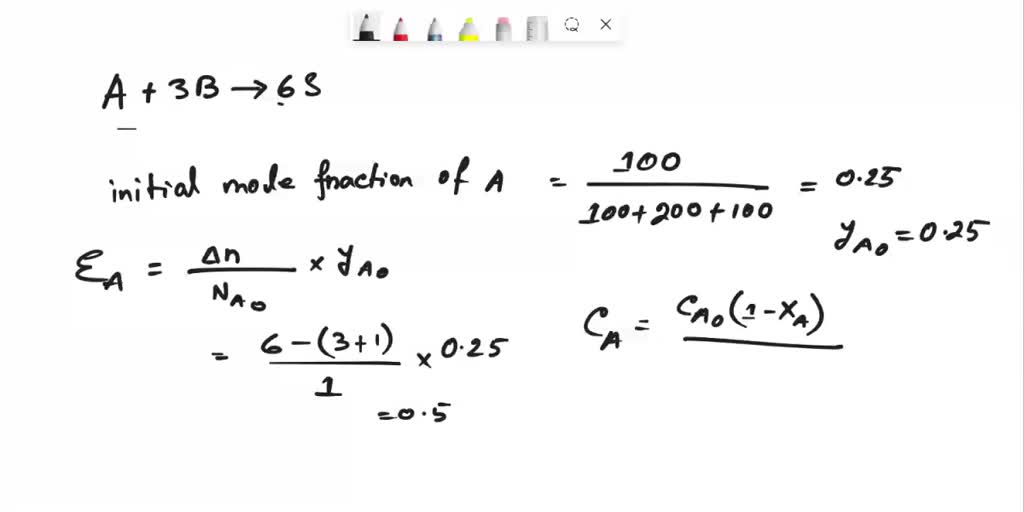 A + 3B → 6S
initial mode fraction of A = 100 / 100+200+100 = 0.25
y_A0 = 0.25
ε_A = Δn / N_A0 × y_A0
= 6-(3+1) / 1 × 0.25
= 0.5
C_A = C_A0(1-X_A)